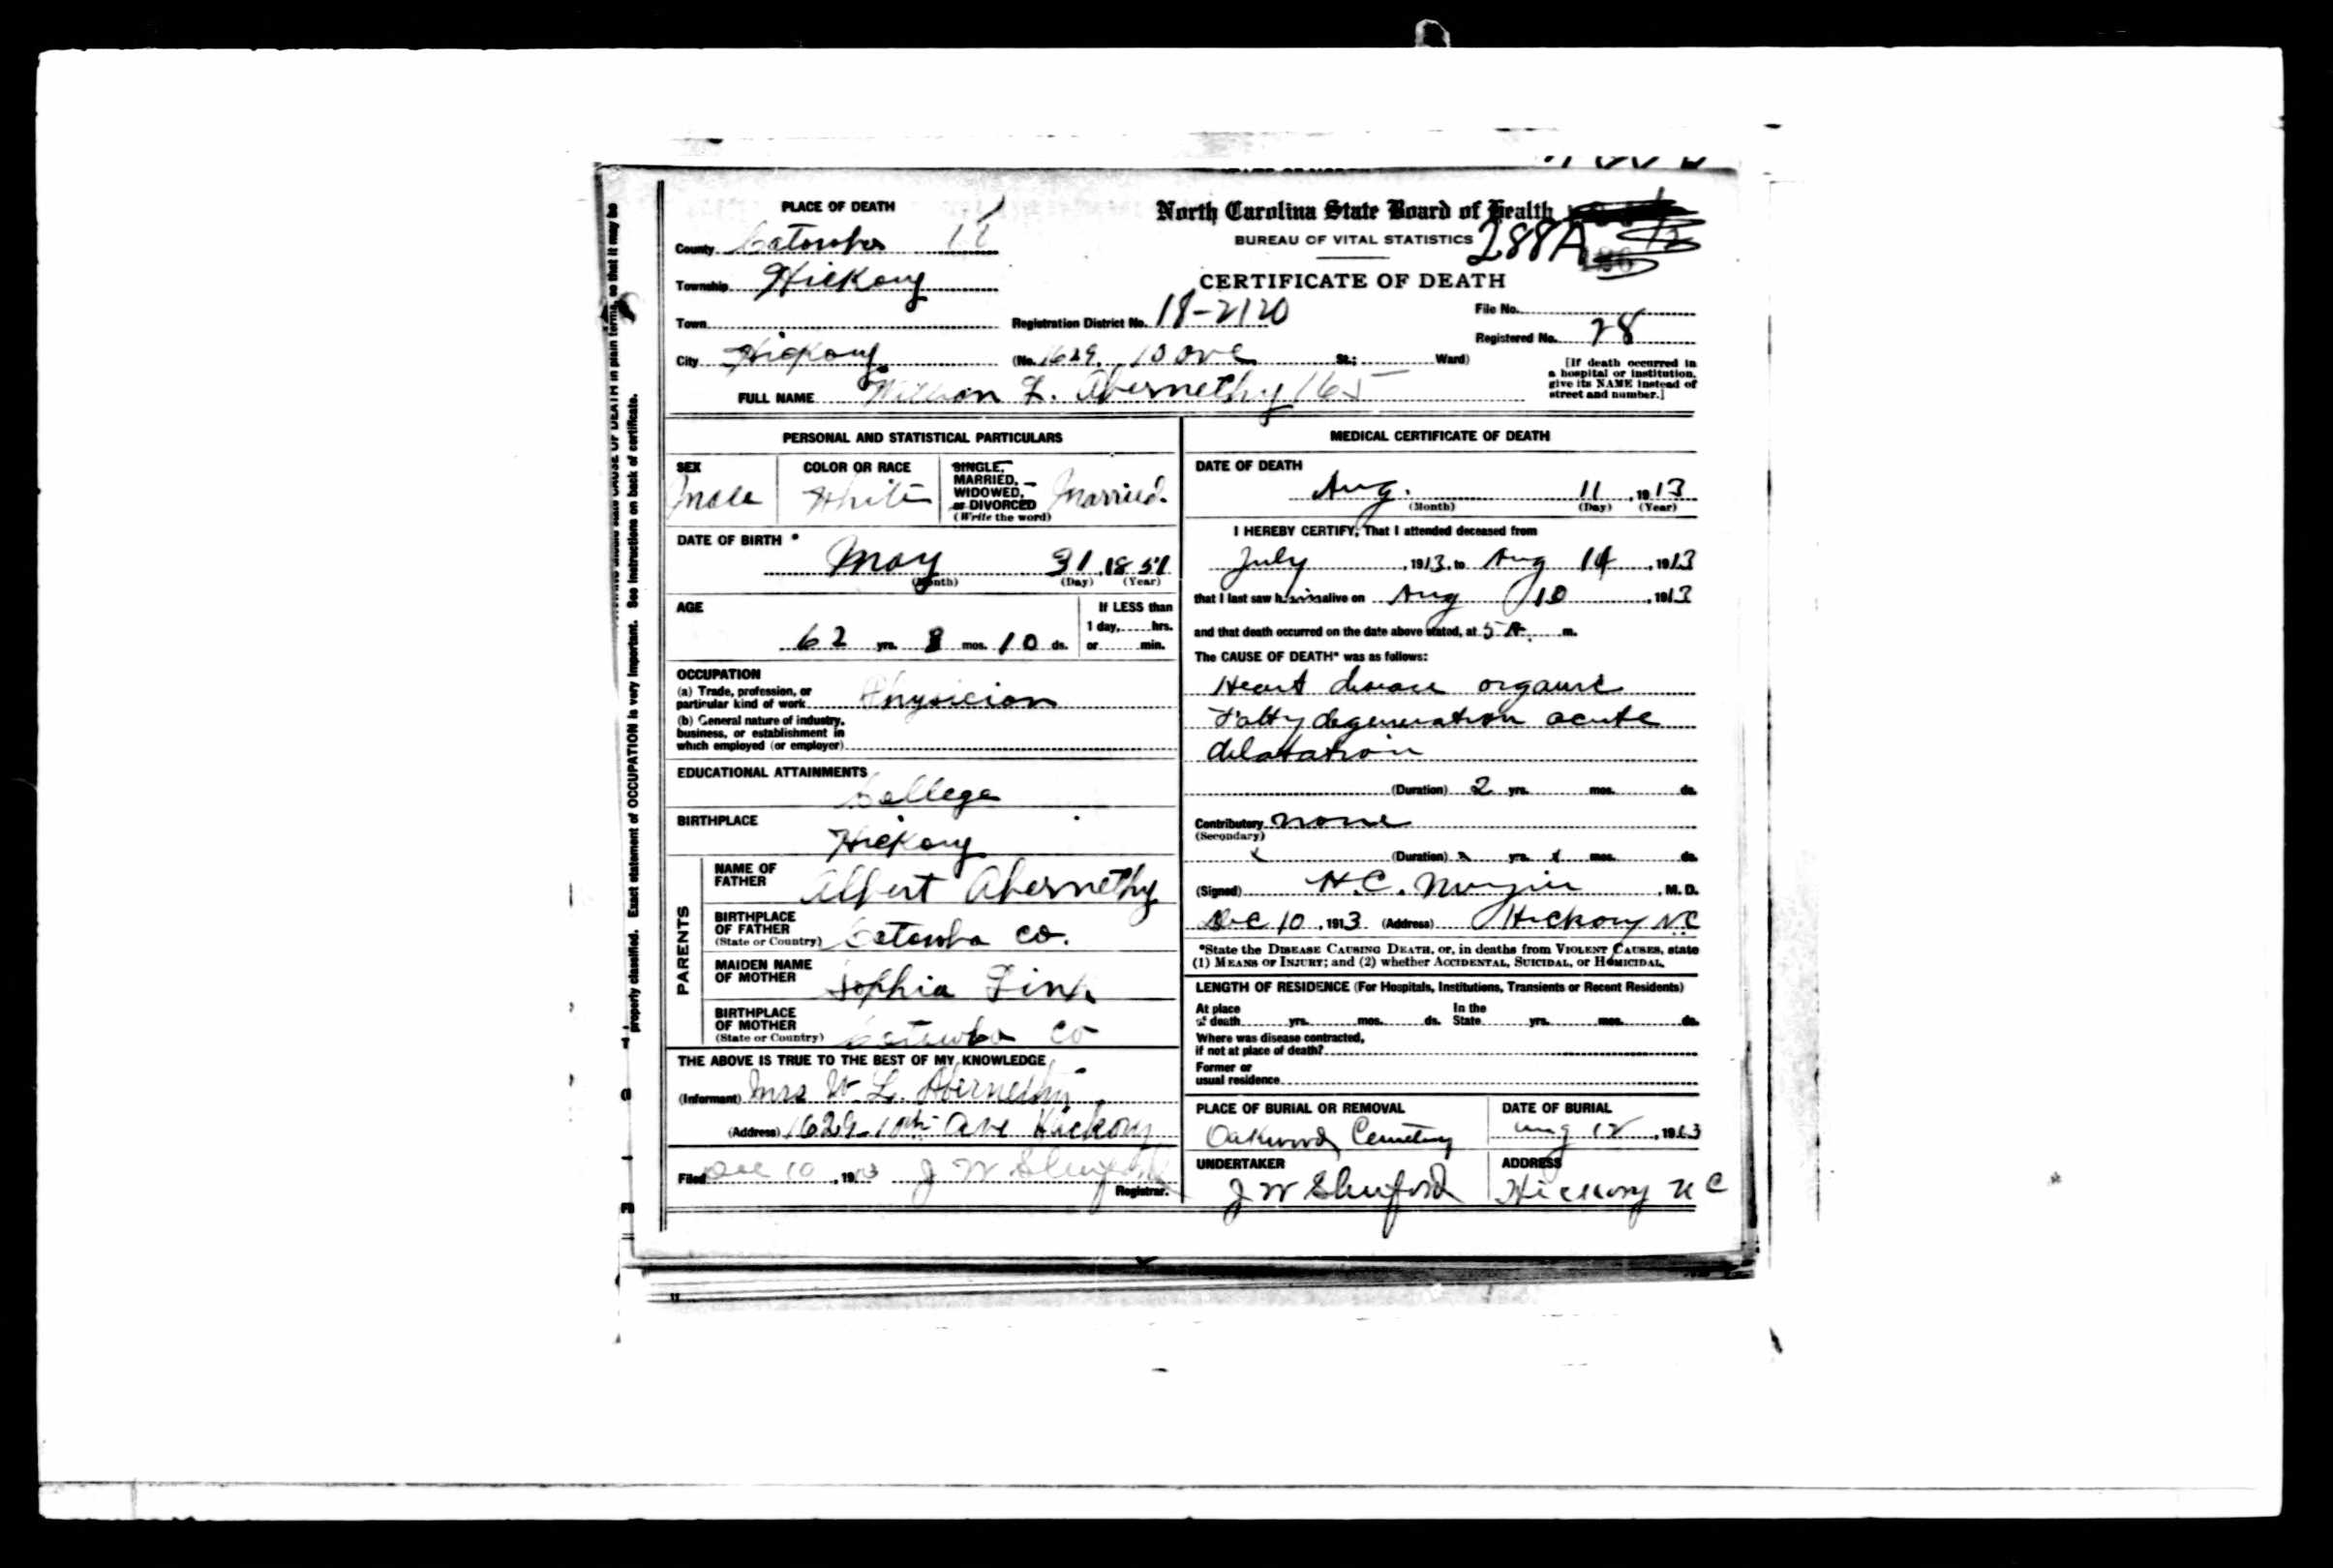 PLACE OF DEATH
County Catawba
Township Hickory
Town
City Hickory (No. 1629. 10 ave St.; Ward)
FULL NAME William L. Abernethy 165
North Carolina State Board of Health
BUREAU OF VITAL STATISTICS 288A
CERTIFICATE OF DEATH
Registration District No. 18-2120
File No.
Registered No. 28
[If death occurred in
a hospital or institution,
give its NAME instead of
street and number.]
PERSONAL AND STATISTICAL PARTICULARS
SEX
Male
COLOR OR RACE
White
SINGLE,
MARRIED,
WIDOWED,
or DIVORCED
(Write the word)
Married.
DATE OF BIRTH
May 31, 1851
(Month) (Day) (Year)
AGE
62 yrs. mos. 10 ds.
If LESS than
1 day, hrs.
or min.
OCCUPATION
(a) Trade, profession, or
particular kind of work Physician
(b) General nature of industry,
business, or establishment in
which employed (or employer)
EDUCATIONAL ATTAINMENTS
College
BIRTHPLACE
Hickory
PARENTS
NAME OF
FATHER Albert Abernethy
BIRTHPLACE
OF FATHER
(State or Country) Catawba Co.
MAIDEN NAME
OF MOTHER Sophia Link
BIRTHPLACE
OF MOTHER
(State or Country) Catawba Co
THE ABOVE IS TRUE TO THE BEST OF MY KNOWLEDGE
(Informant) Mrs W. L. Abernethy
(Address) 1629-10th Ave Hickory
Filed Dec 10, 1913 J W Shuford
Registrar.
MEDICAL CERTIFICATE OF DEATH
DATE OF DEATH
Aug. 11, 1913
(Month) (Day) (Year)
I HEREBY CERTIFY, That I attended deceased from
July, 1913, to Aug, 1913
that I last saw him alive on Aug 10, 1913
and that death occurred on the date above stated, at 5 A. m.
The CAUSE OF DEATH* was as follows:
Heart disease organic
Fatty degeneration acute
dilatation
(Duration) 2 yrs. mos. ds.
Contributory none
(Secondary)
(Duration) yrs. mos. ds.
(Signed) H.C. , M. D.
Dec 10, 1913 (Address) Hickory NC
*State the DISEASE CAUSING DEATH, or, in deaths from VIOLENT CAUSES, state
(1) MEANS OF INJURY; and (2) whether ACCIDENTAL, SUICIDAL, or HOMICIDAL.
LENGTH OF RESIDENCE (For Hospitals, Institutions, Transients or Recent Residents)
At place
of death yrs. mos. ds.
In the
State yrs. mos. ds.
Where was disease contracted,
if not at place of death?
Former or
usual residence
PLACE OF BURIAL OR REMOVAL
Oakwood Cemetery
DATE OF BURIAL
Aug 12, 1913
UNDERTAKER
J W Shuford
ADDRESS
Hickory N C
properly classified. Exact statement of OCCUPATION is very important. See instructions on back of certificate.